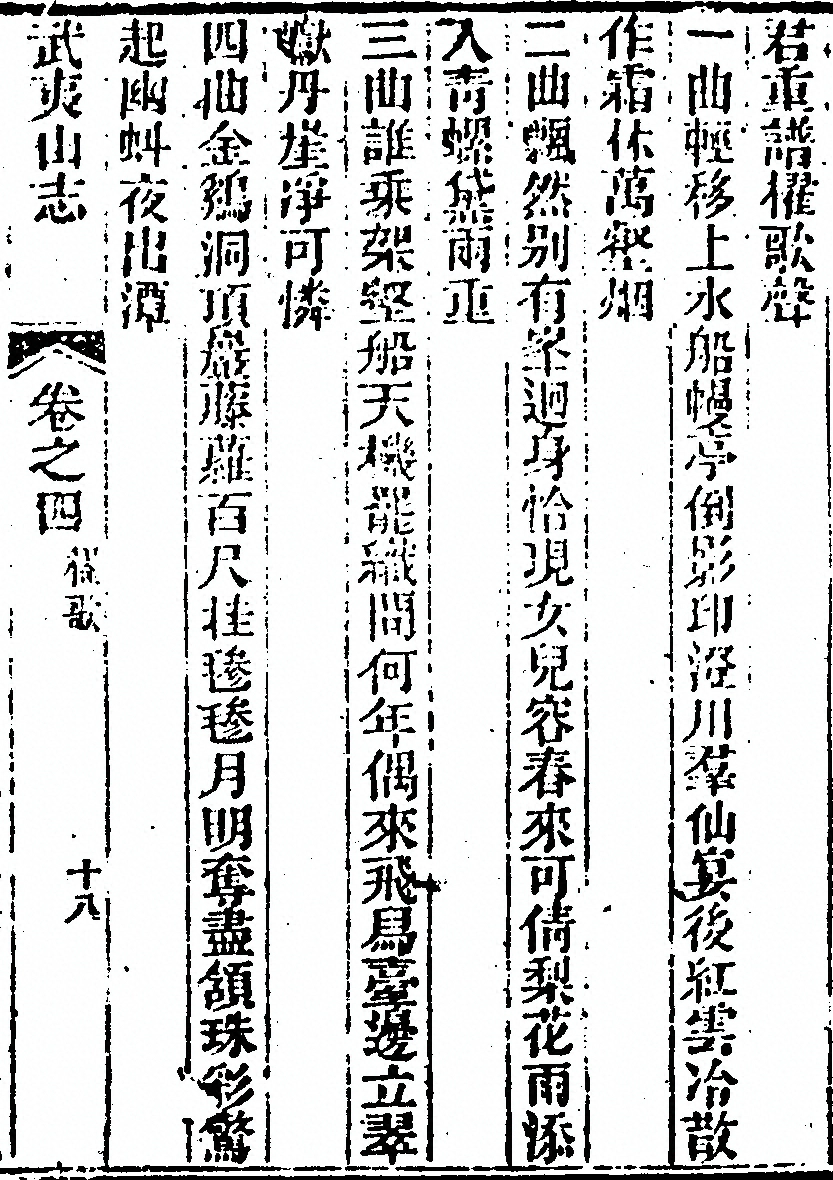 若重譜櫂歌聲
一曲輕移上水船幔亭倒影印澄川羣仙宴後紅雲冷散
作霜林萬壑烟
二曲飄然别有峯迴身恰現女兒容春來可倩梨花雨添
入青螺黛兩重
三曲誰乘架壑船天機能織問何年偶來飛舄臺邊立翠
巘丹崖淨可憐
四曲金鷄洞頂巖藤蘿百尺挂毿毿月明奪盡頷珠彩驚
起幽蚪夜出潭
武夷山志
卷之四
櫂歌
十八